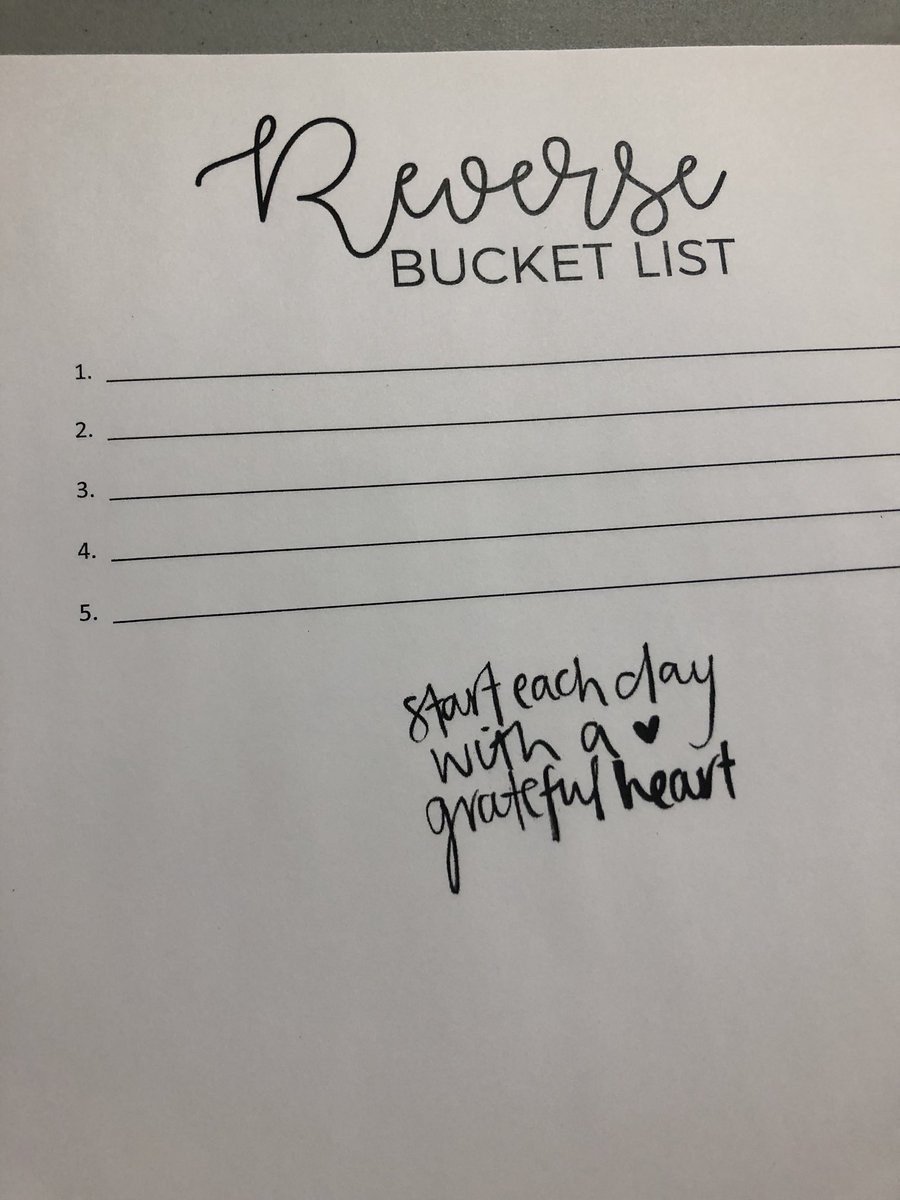 Reverse
BUCKET LIST
1.
2.
3.
4.
5.
start each day
with a ♥
grateful heart